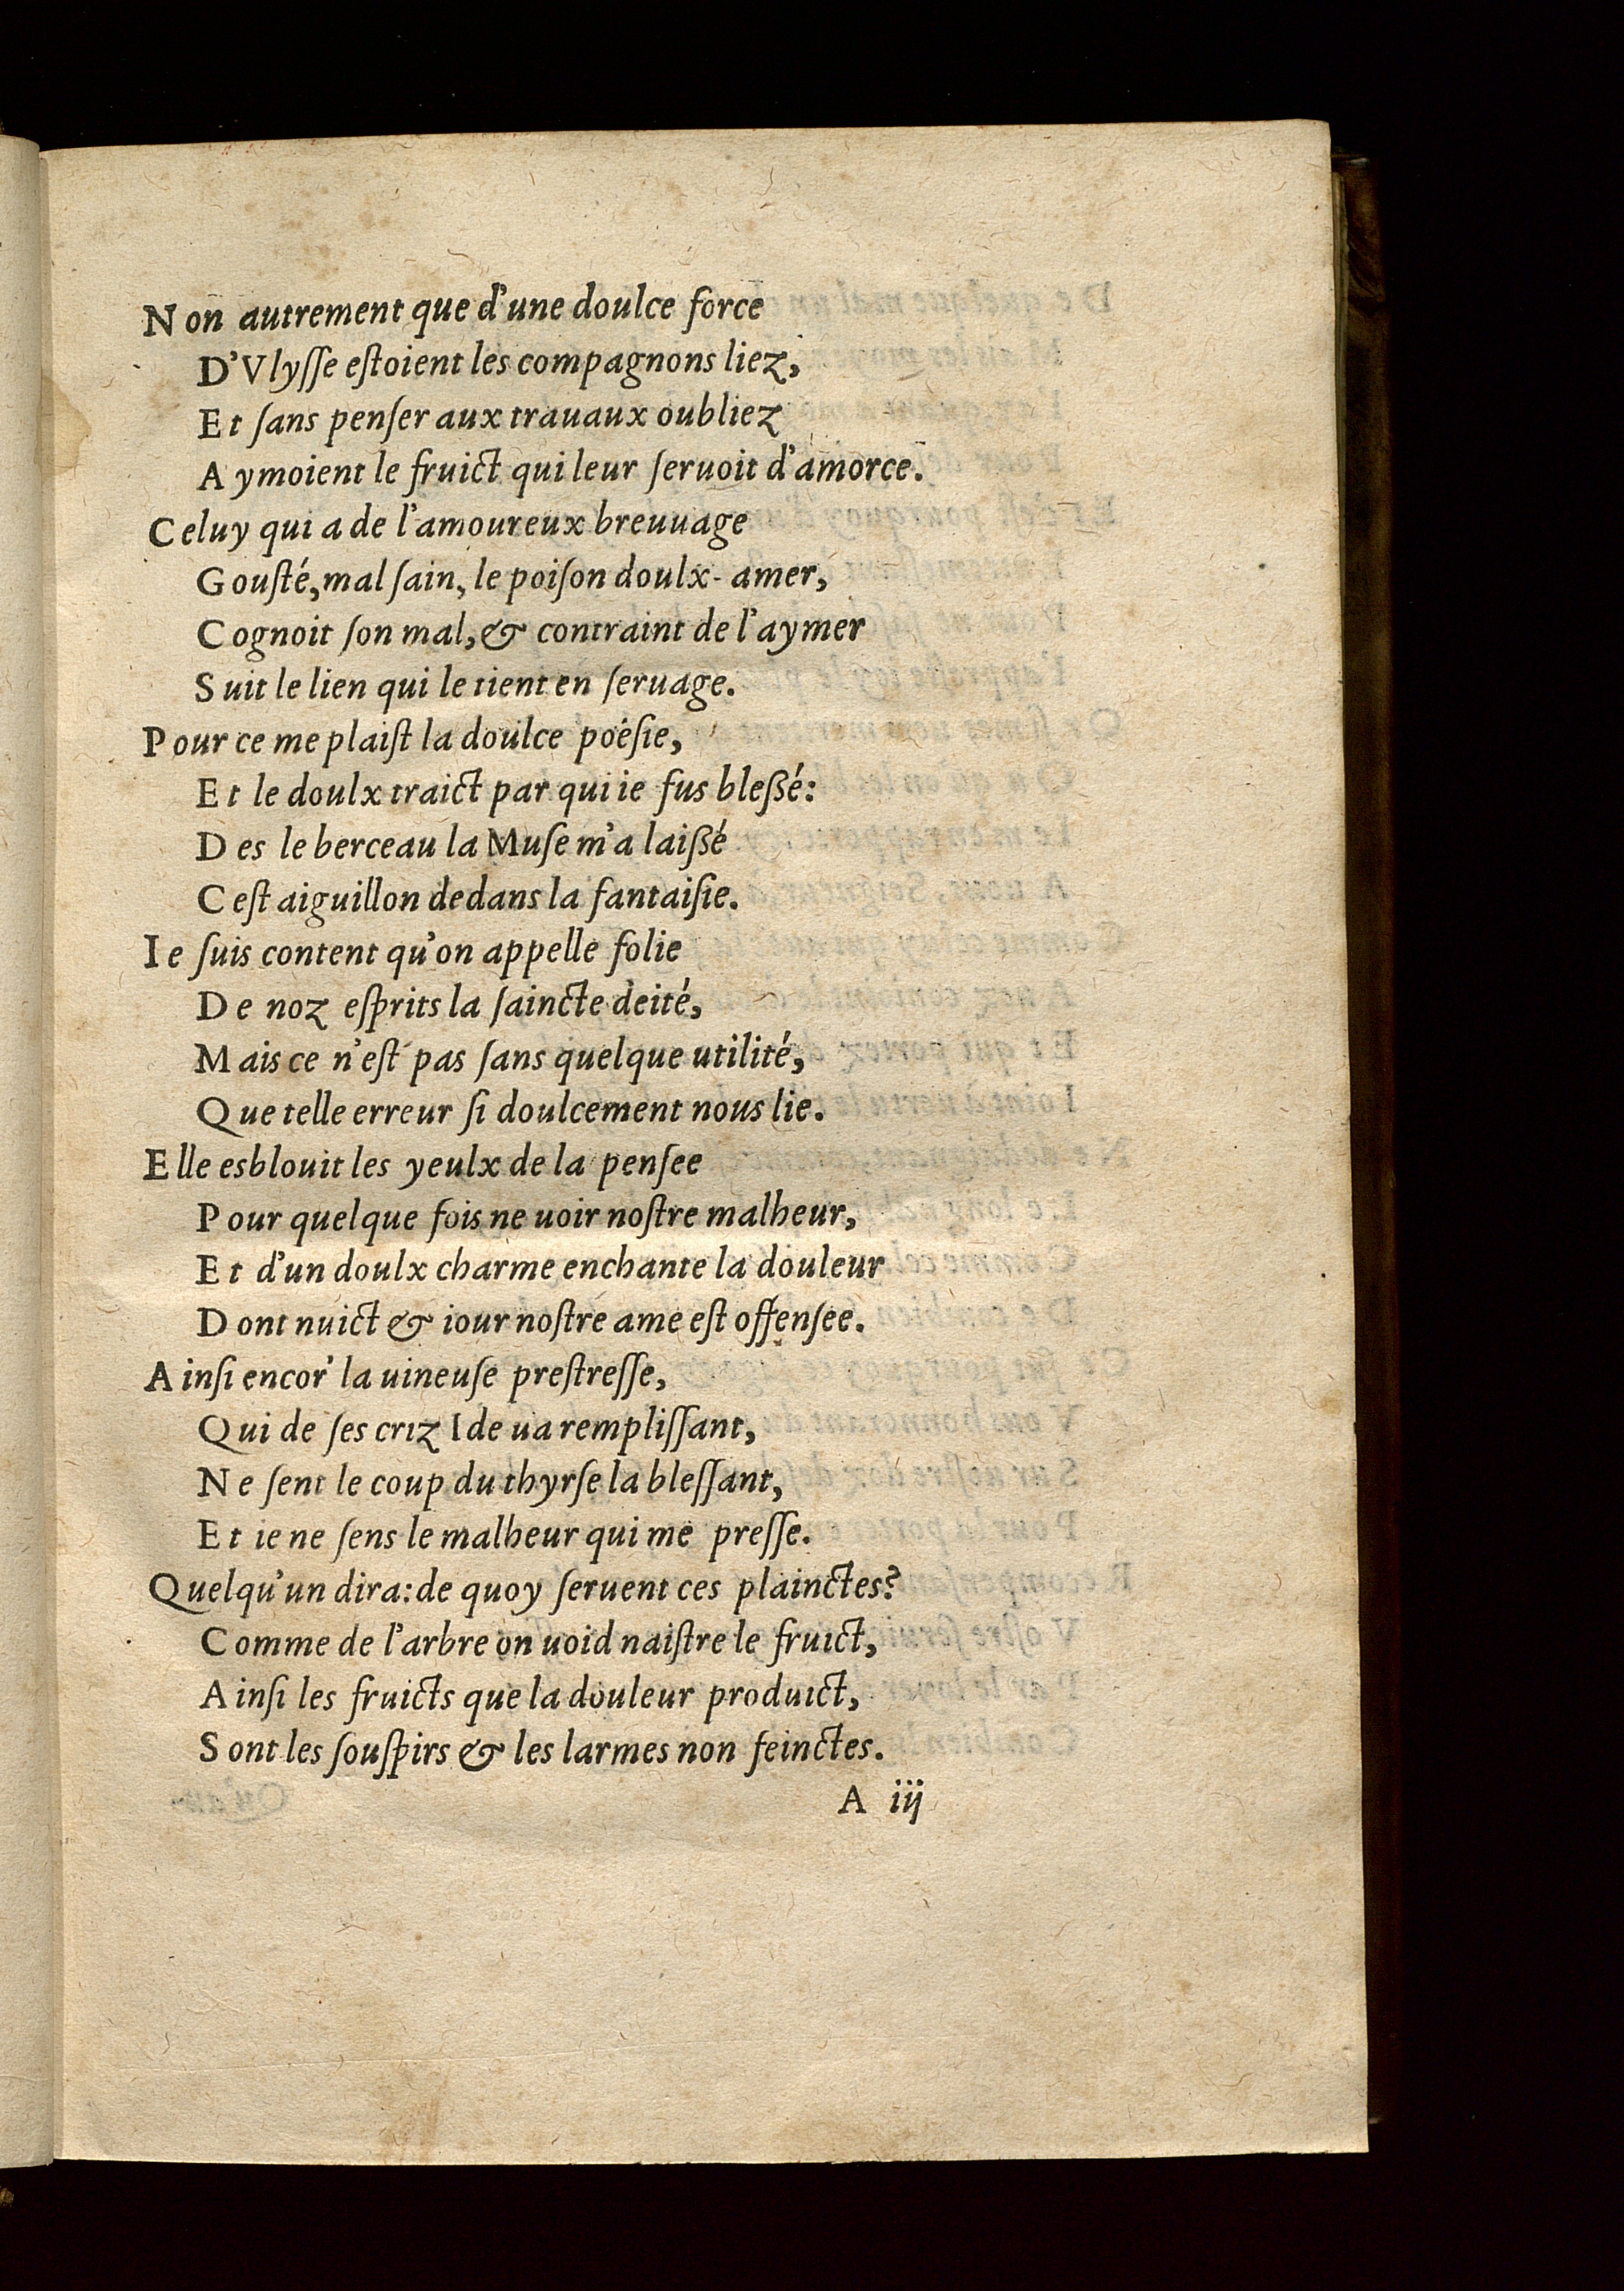 Non autrement que d'une doulce force
D'Vlyſſe eſtoient les compagnons liez,
Et ſans penſer aux trauaux oubliez
Aymoient le fruict qui leur ſeruoit d'amorce.
Celuy qui a de l'amoureux breuuage
Gouſté, mal ſain, le poiſon doulx-amer,
Cognoit ſon mal, & contraint de l'aymer
Suit le lien qui le tient en ſeruage.
Pour ce me plaiſt la doulce poëſie,
Et le doulx traict par qui ie fus bleßé:
Des le berceau la Muſe m'a laißé
Ceſt aiguillon dedans la fantaiſie.
Ie ſuis content qu'on appelle folie
De noz eſprits la ſaincte deité,
Mais ce n'eſt pas ſans quelque utilité,
Que telle erreur ſi doulcement nous lie.
Elle esblouit les yeulx de la penſee
Pour quelque fois ne uoir noſtre malheur,
Et d'un doulx charme enchante la douleur
Dont nuict & iour noſtre ame eſt offenſee.
Ainſi encor' la uineuſe preſtreſſe,
Qui de ſes criz Ide ua rempliſſant,
Ne ſent le coup du thyrſe la bleſſant,
Et ie ne ſens le malheur qui me preſſe.
Quelqu'un dira: de quoy ſeruent ces plainctes?
Comme de l'arbre on uoid naiſtre le fruict,
Ainſi les fruicts que la douleur produict,
Sont les ſouſpirs & les larmes non feinctes.
A iij